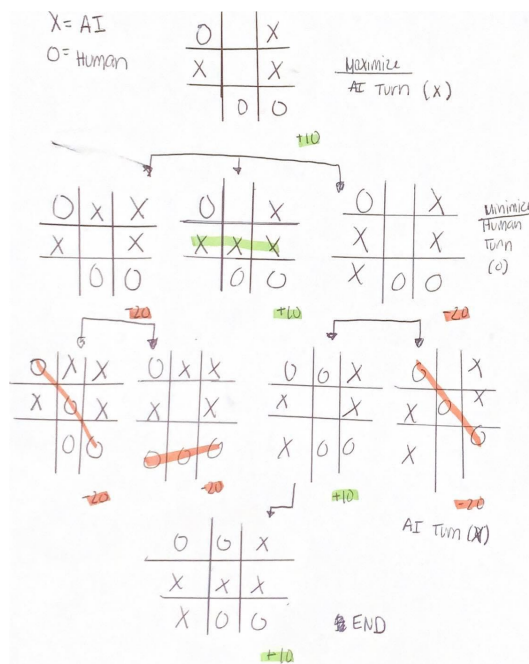 X = AI
O = Human
O X
X X
O O
Maximize
AI Turn (X)
+10
O X X
X X
O O
-20
O X
X X X
O O
+10
O X
X X
X O O
-20
Minimize
Human
Turn
(O)
O X X
X O X
O O
-20
O X X
X X
O O O
-20
O O X
X X
X O O
+10
O X
X O X
X O
-20
AI Turn (X)
O O X
X X X
X O O
+10
END